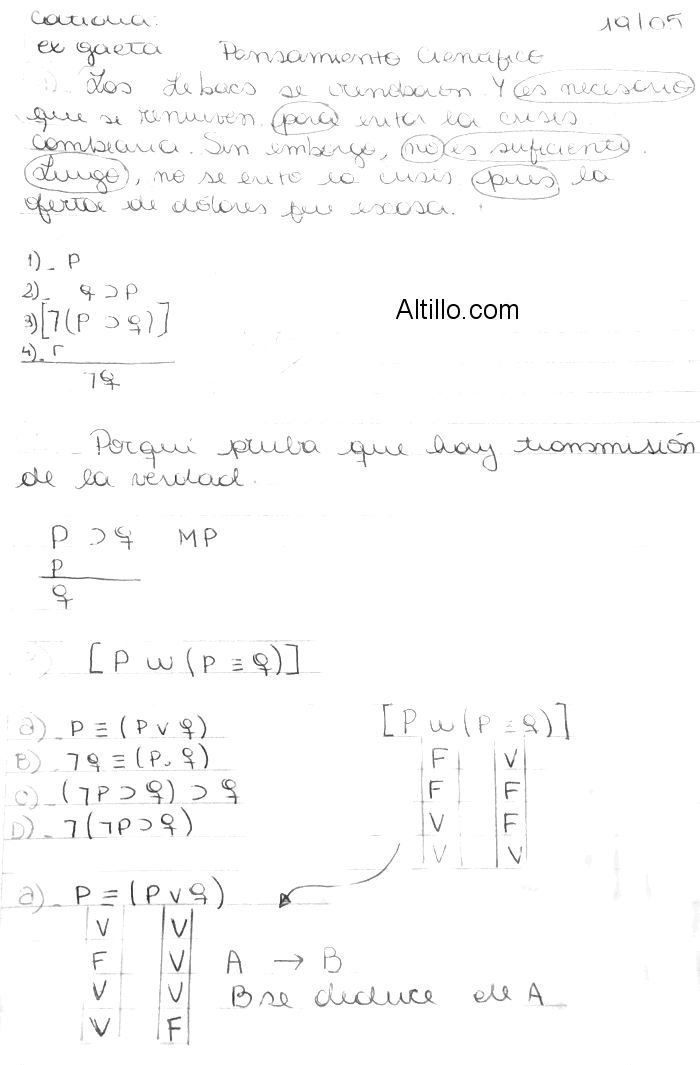 Cátedra: 19/05
ex gaeta Pensamiento Científico
Los Lebacs se vendieron. Y es necesario
que se renueven para evitar la crisis
cambiaria. Sin embargo, no es suficiente.
Luego, no se evitó la crisis pues la
oferta de dólares fue escasa.
1)- P
2)- q ⊃ P
3) [¬(P ⊃ q)]
Altillo.com
4)- r
¬q
Porqué prueba que hay transmisión
de la verdad.
P ⊃ q MP
P
q
[P w (P ≡ q)]
a)- P ≡ (P v q) [P w (P ≡ q)]
B) ¬q ≡ (P . q) F V
C)- (¬P ⊃ q) ⊃ q F F
D)- ¬(¬P ⊃ q) V F
V V
a)- P ≡ (P v q)
V V
F V A → B
V V B se deduce de A
V F